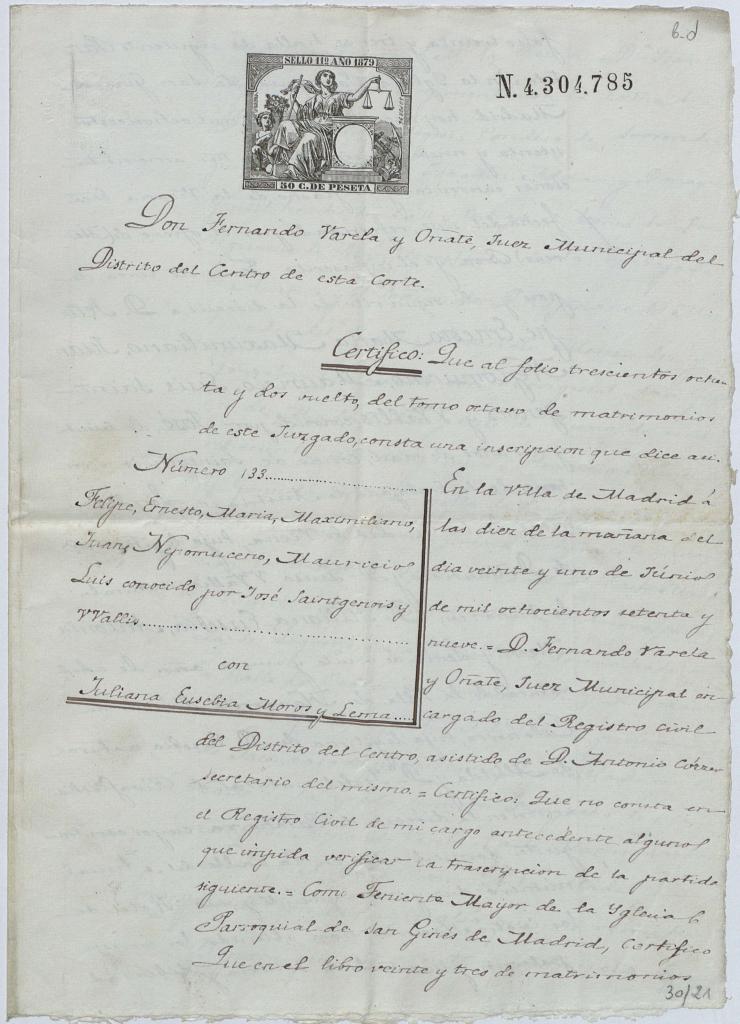 B-d
SELLO 11º AÑO 1879
N. 4.304.785
50 C. DE PESETA
Don Fernando Varela y Oñate, Juez Municipal del
Distrito del Centro de esta Corte.
Certifico: Que al folio trescientos ochen-
ta y dos vuelto, del tomo octavo de matrimonios
de este Juzgado, consta una inscripcion que dice asi.
Número 133
Felipe, Ernesto, Maria, Maximiliano,
Juan, Nepomuceno, Mauricio
Luis conocido por José Saintgenois y
VVallis
con
Juliana Eusebia Moros y Lema
En la Villa de Madrid á
las diez de la mañana del
dia veinte y uno de Júnio
de mil ochocientos setenta y
nueve.= D. Fernando Varela
y Oñate, Juez Municipal en
cargado del Registro Civil
del Distrito del Centro, asistido de D. Antonio
secretario del mismo.= Certifico: Que no consta en
el Registro Civil de mi cargo antecedente alguno
que impida verificar la trascripcion de la partida
siguiente.= Como Teniente Mayor de la Yglesia
Parroquial de San Ginés de Madrid, Certifico
Que en el libro veinte y tres de matrimonios
30/21